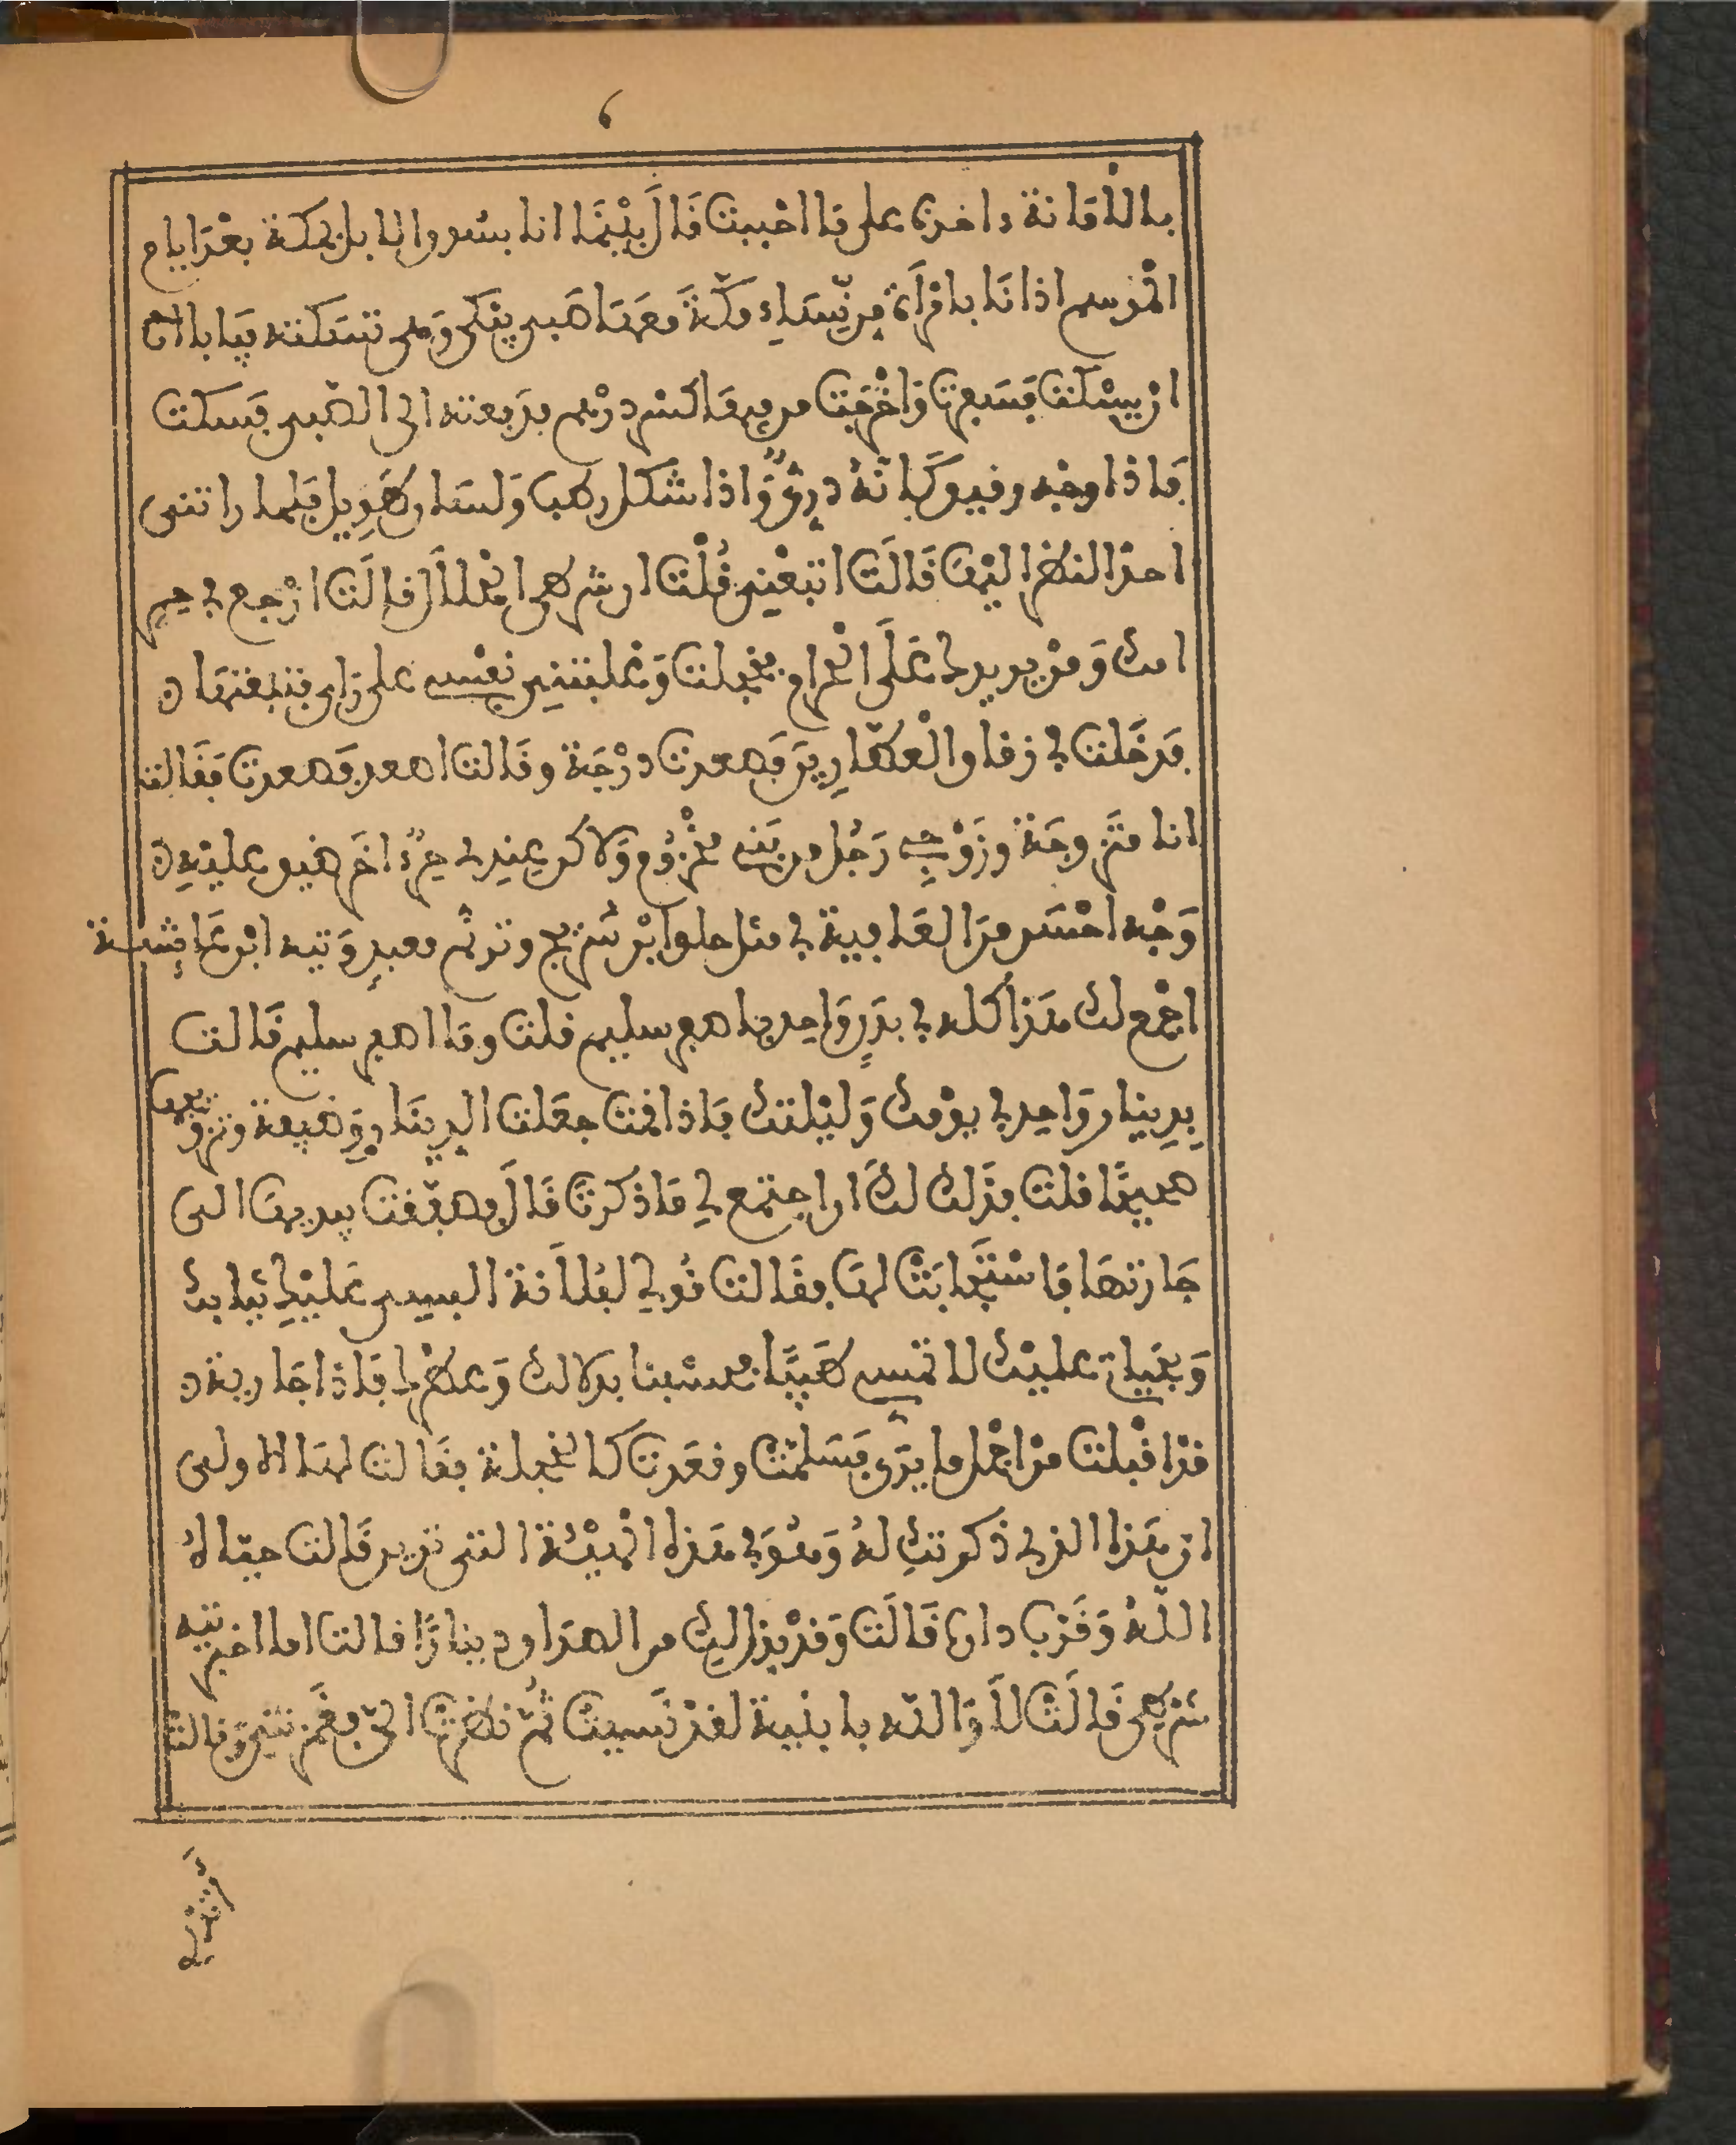 ٦
بالامانة داخرنا على ما احببت قَال بَيْنَمَا انا بسوو الابل بمكة بعْدَ ايام
الْمَوسم اذا نَا بامْرَأة مِن نِّسَاءِ مكّة معَهَا صَبي يبْكي وَهى تسَكته فيَابا
ان يسْكت فسَفرت وَاخْرجَت من فيهَا كسْر درْهم فدَفعته الى الصّبي فسَكت
فاذا وجْه رقيو كَانّهُ دريٌّ وَّاذا شكل رطب وَلسَان طَوِيل فلما راتنى
احدّ النظر اليْهَا قَالَت اتبعْنى فُلْت ان شرطى الْحلال قالَت ارْجع في حِرِ
امك وَمنْ يريدك عَلَى الْحرام فخجلت وَغلبتنِى نفْسى على رَاى فتبعتهَا
فدخَلت في زفاو الْعطّارِينَ فصعدت درْجَة وقَالت اصعد فصعدت فَقَالت
انا متَزوجَة وزَوْجِى رَجُل من بَني مخْزُوم وَلاكن عندِي حِرٌ اخَر ضيو عليْهِ
وَجْه احْسَن منَ العَافية في مثل حلو ابْن سُرَيْج وترنُّم معبدٍ وَتيه ابْن عَائِشة
اجْمع لك هَذا كله في بدَنٍ وَاحد باصفر سليم فلت وما اصفر سليم قَالت
بدِينار وَاحد في يوْمك وَليْلتك فاذا قمت جعَلت الدِينَار وَظيفة وتزويجا
صحيحًا فلت فذَلك لكِ ان اجتمع لي مَا ذكرت قَالَ فصفّقت بيديهَا الى
جَارتهَا فاسْتجَابَتْ لهَا فقَالت قُولي لفُلَانة البسى عَليْكِ ثيَابك
وَبحَيَاتى عليْك لا تمسي طيبًا فحسْبنا بدَلالك وَعطْرا فاذا جَارية
قدْ اقْبلت منْ اجْمل مَا يرَى فسَلمَتْ وقعَدت كالخجلة فقَالت لهَا الاولى
ان هَذا الذي ذكرتكِ لهُ وَهُو في هَذه الْهيْئة التى ترين قَالت حيّاهُ
اللهُ وَقَرّب دارهُ قَالَت وَقدْ بذل لكِ من الصدَاو دينارًا فالت اما اخبرتيه
شرطى قَالَتْ لَا وَاللّه يا بنْية لقدْ نَسيت ثمّ نظرَتْ الىّ فغَمزتنِى وَقالت
اتدْري